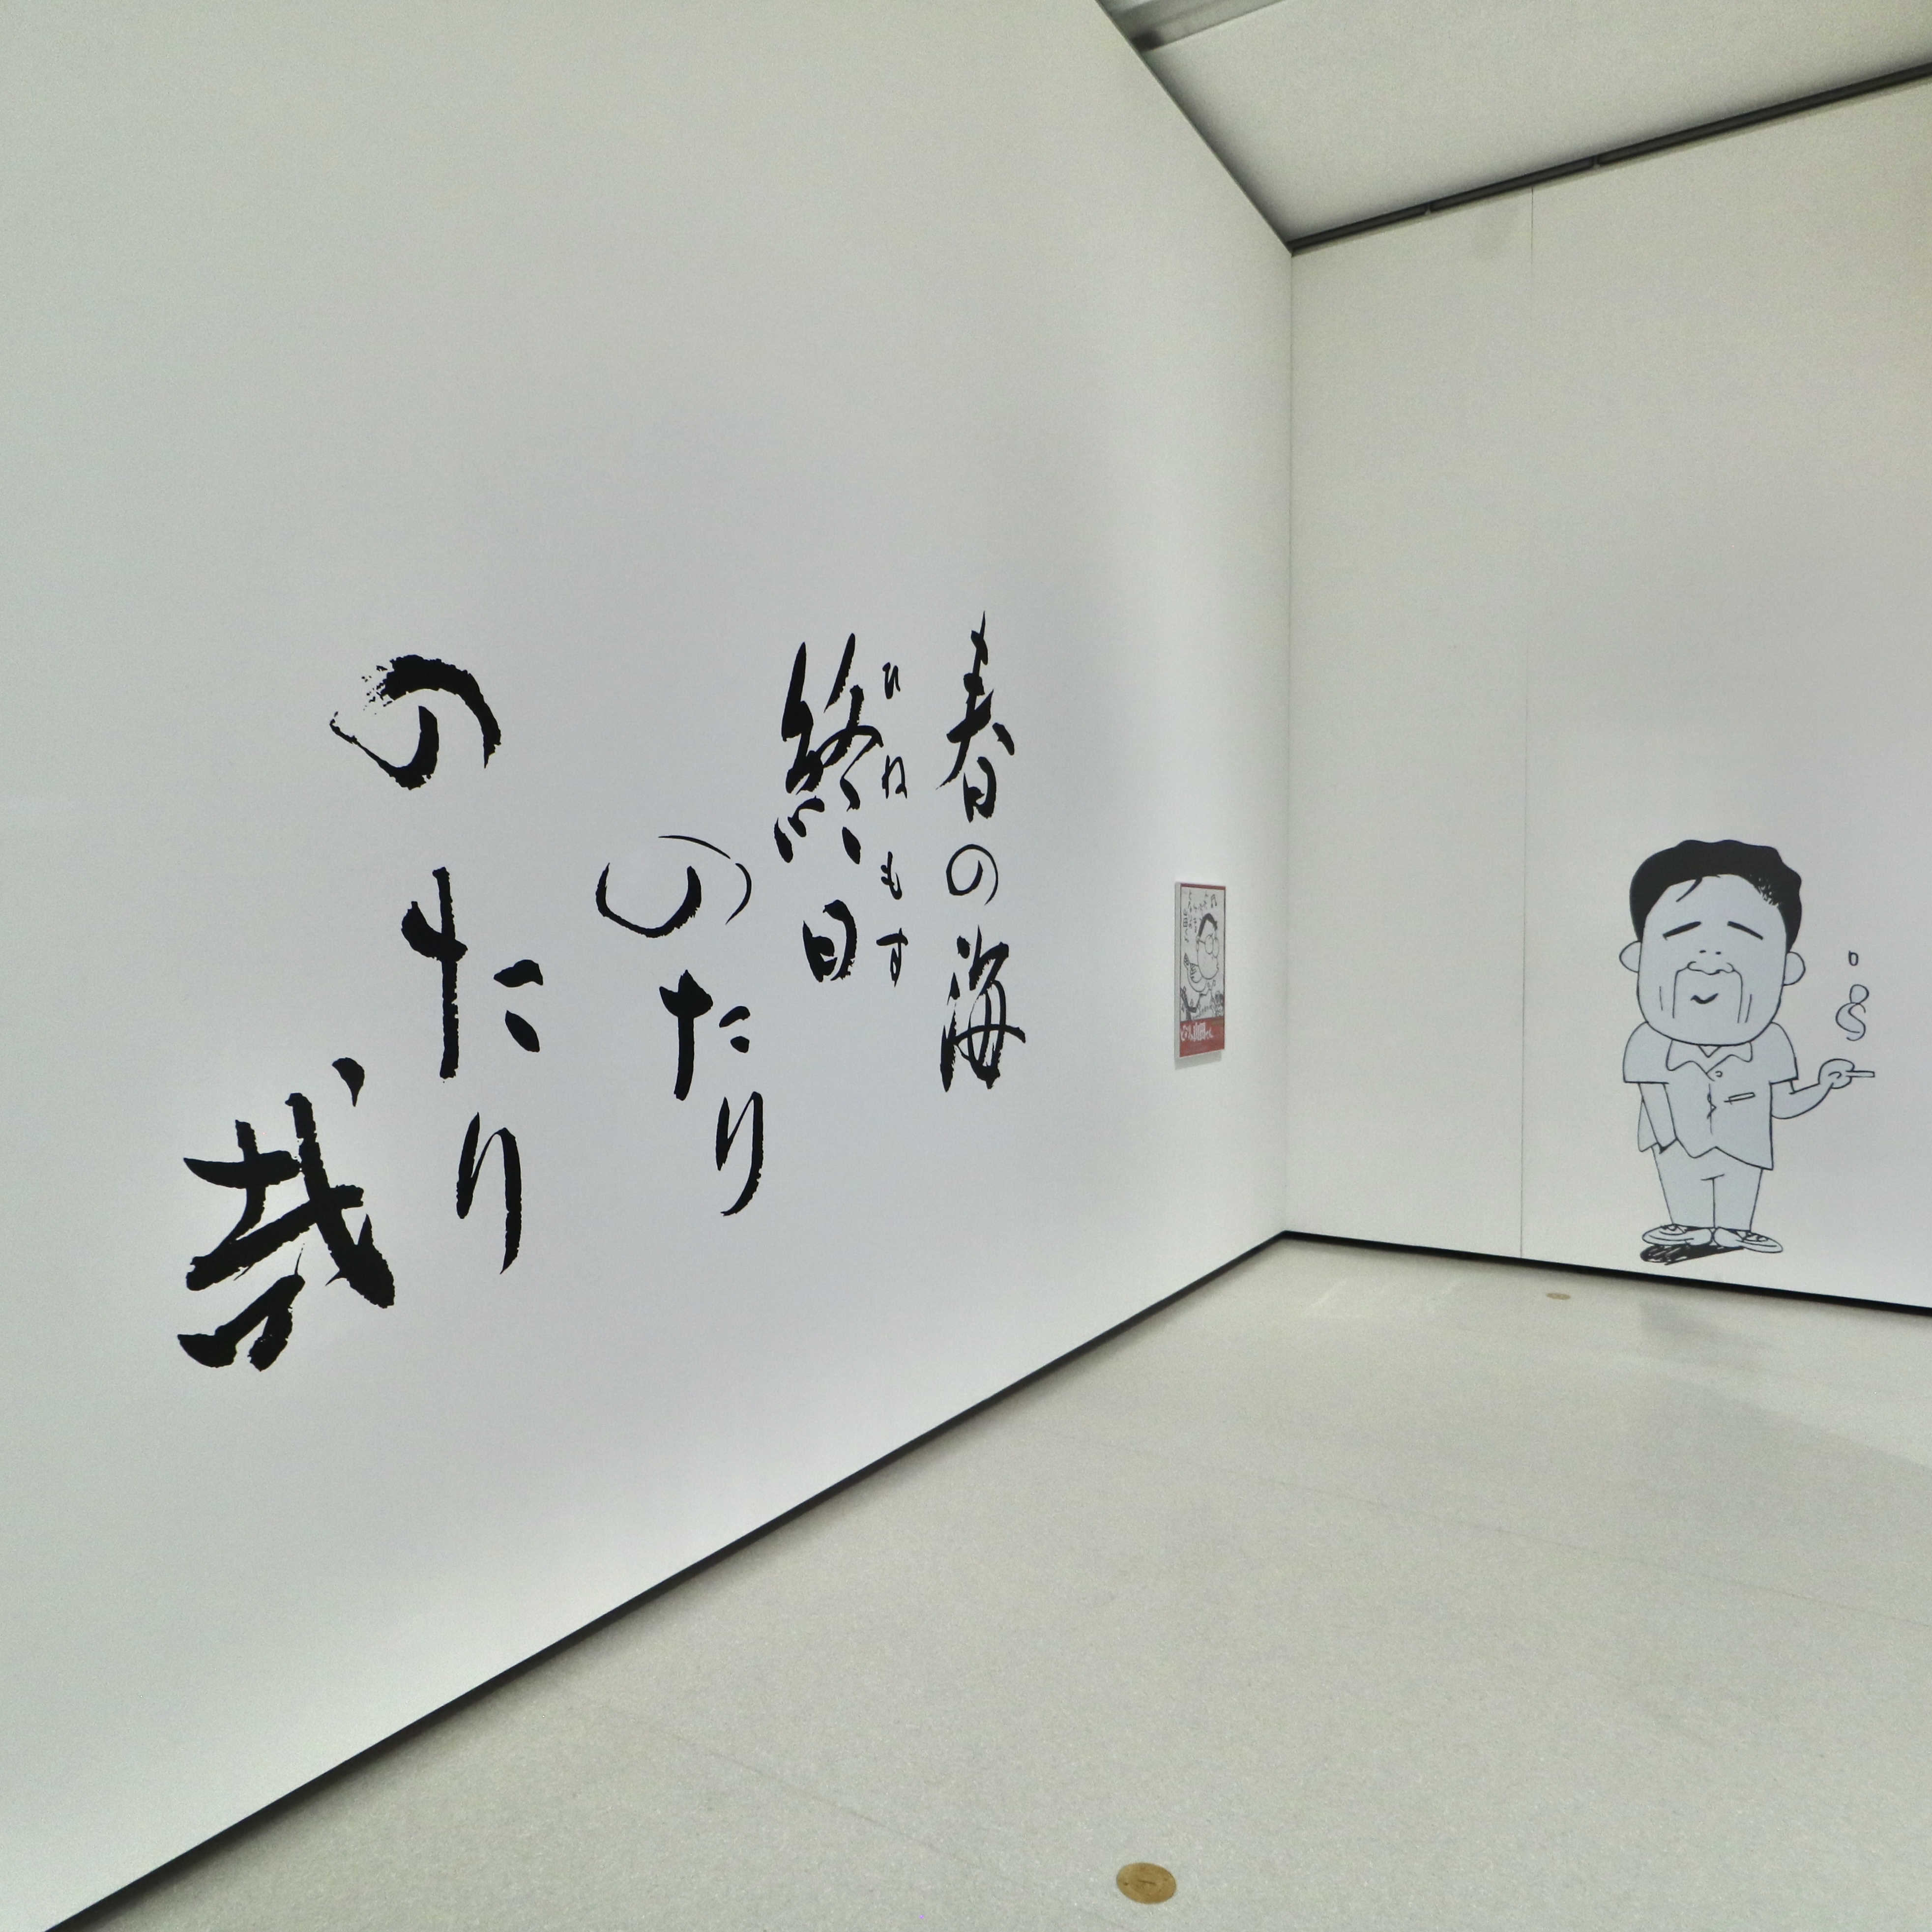 春の海
終日
ひねもす
のたり
のたり
哉